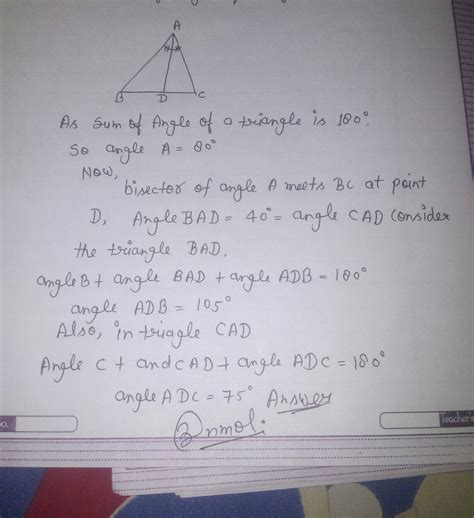 A
B D C
As Sum of Angle of a triangle is 180°.
So angle A = 80°
Now,
bisector of angle A meets BC at point
D, Angle BAD = 40° = angle CAD Consider
the triangle BAD.
angle B + angle BAD + angle ADB = 180°
angle ADB = 105°
Also, in triagle CAD
Angle C + and CAD + angle ADC = 180°
angle ADC = 75° Answer
Teacher's